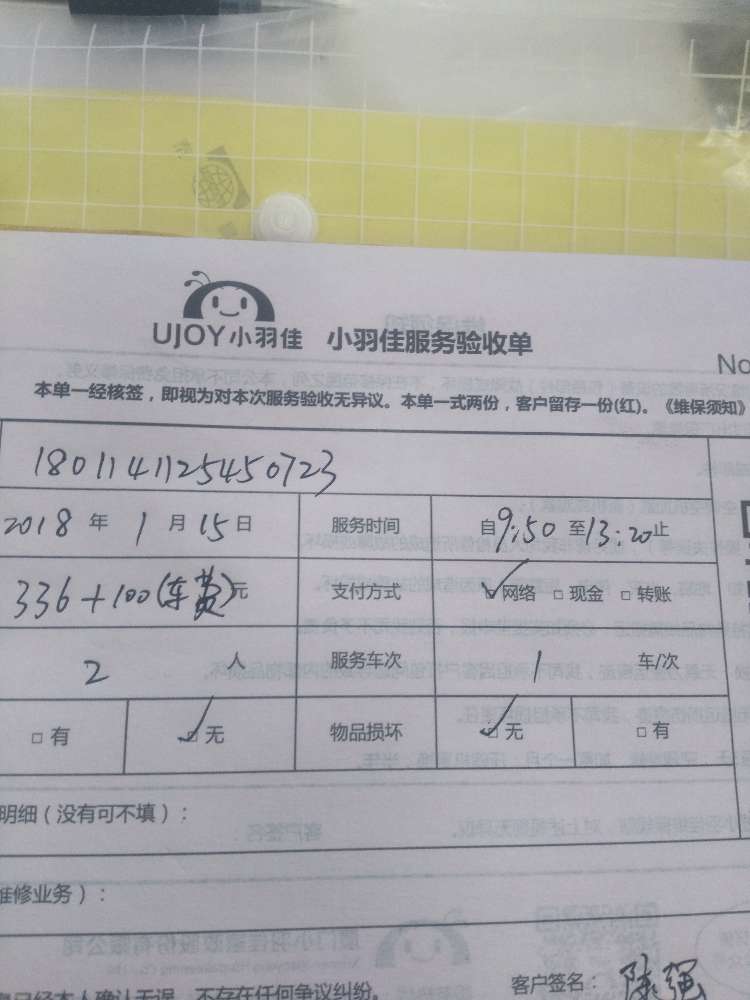 UJOY小羽佳 小羽佳服务验收单
No
本单一经核签，即视为对本次服务验收无异议。本单一式两份，客户留存一份(红)。《维保须知》
1801141125450723
2018年1月15日 服务时间 自9:50至13:20止
336+100(车费)元 支付方式 ☑网络 □现金 □转账
2人 服务车次 1 车/次
□有 ☑无 物品损坏 ☑无 □有
明细（没有可不填）：
维修业务）：
已经本人确认无误，不存在任何争议纠纷。
客户签名：陈强